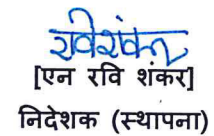 रविशंकर
[एन रवि शंकर]
निदेशक (स्थापना)